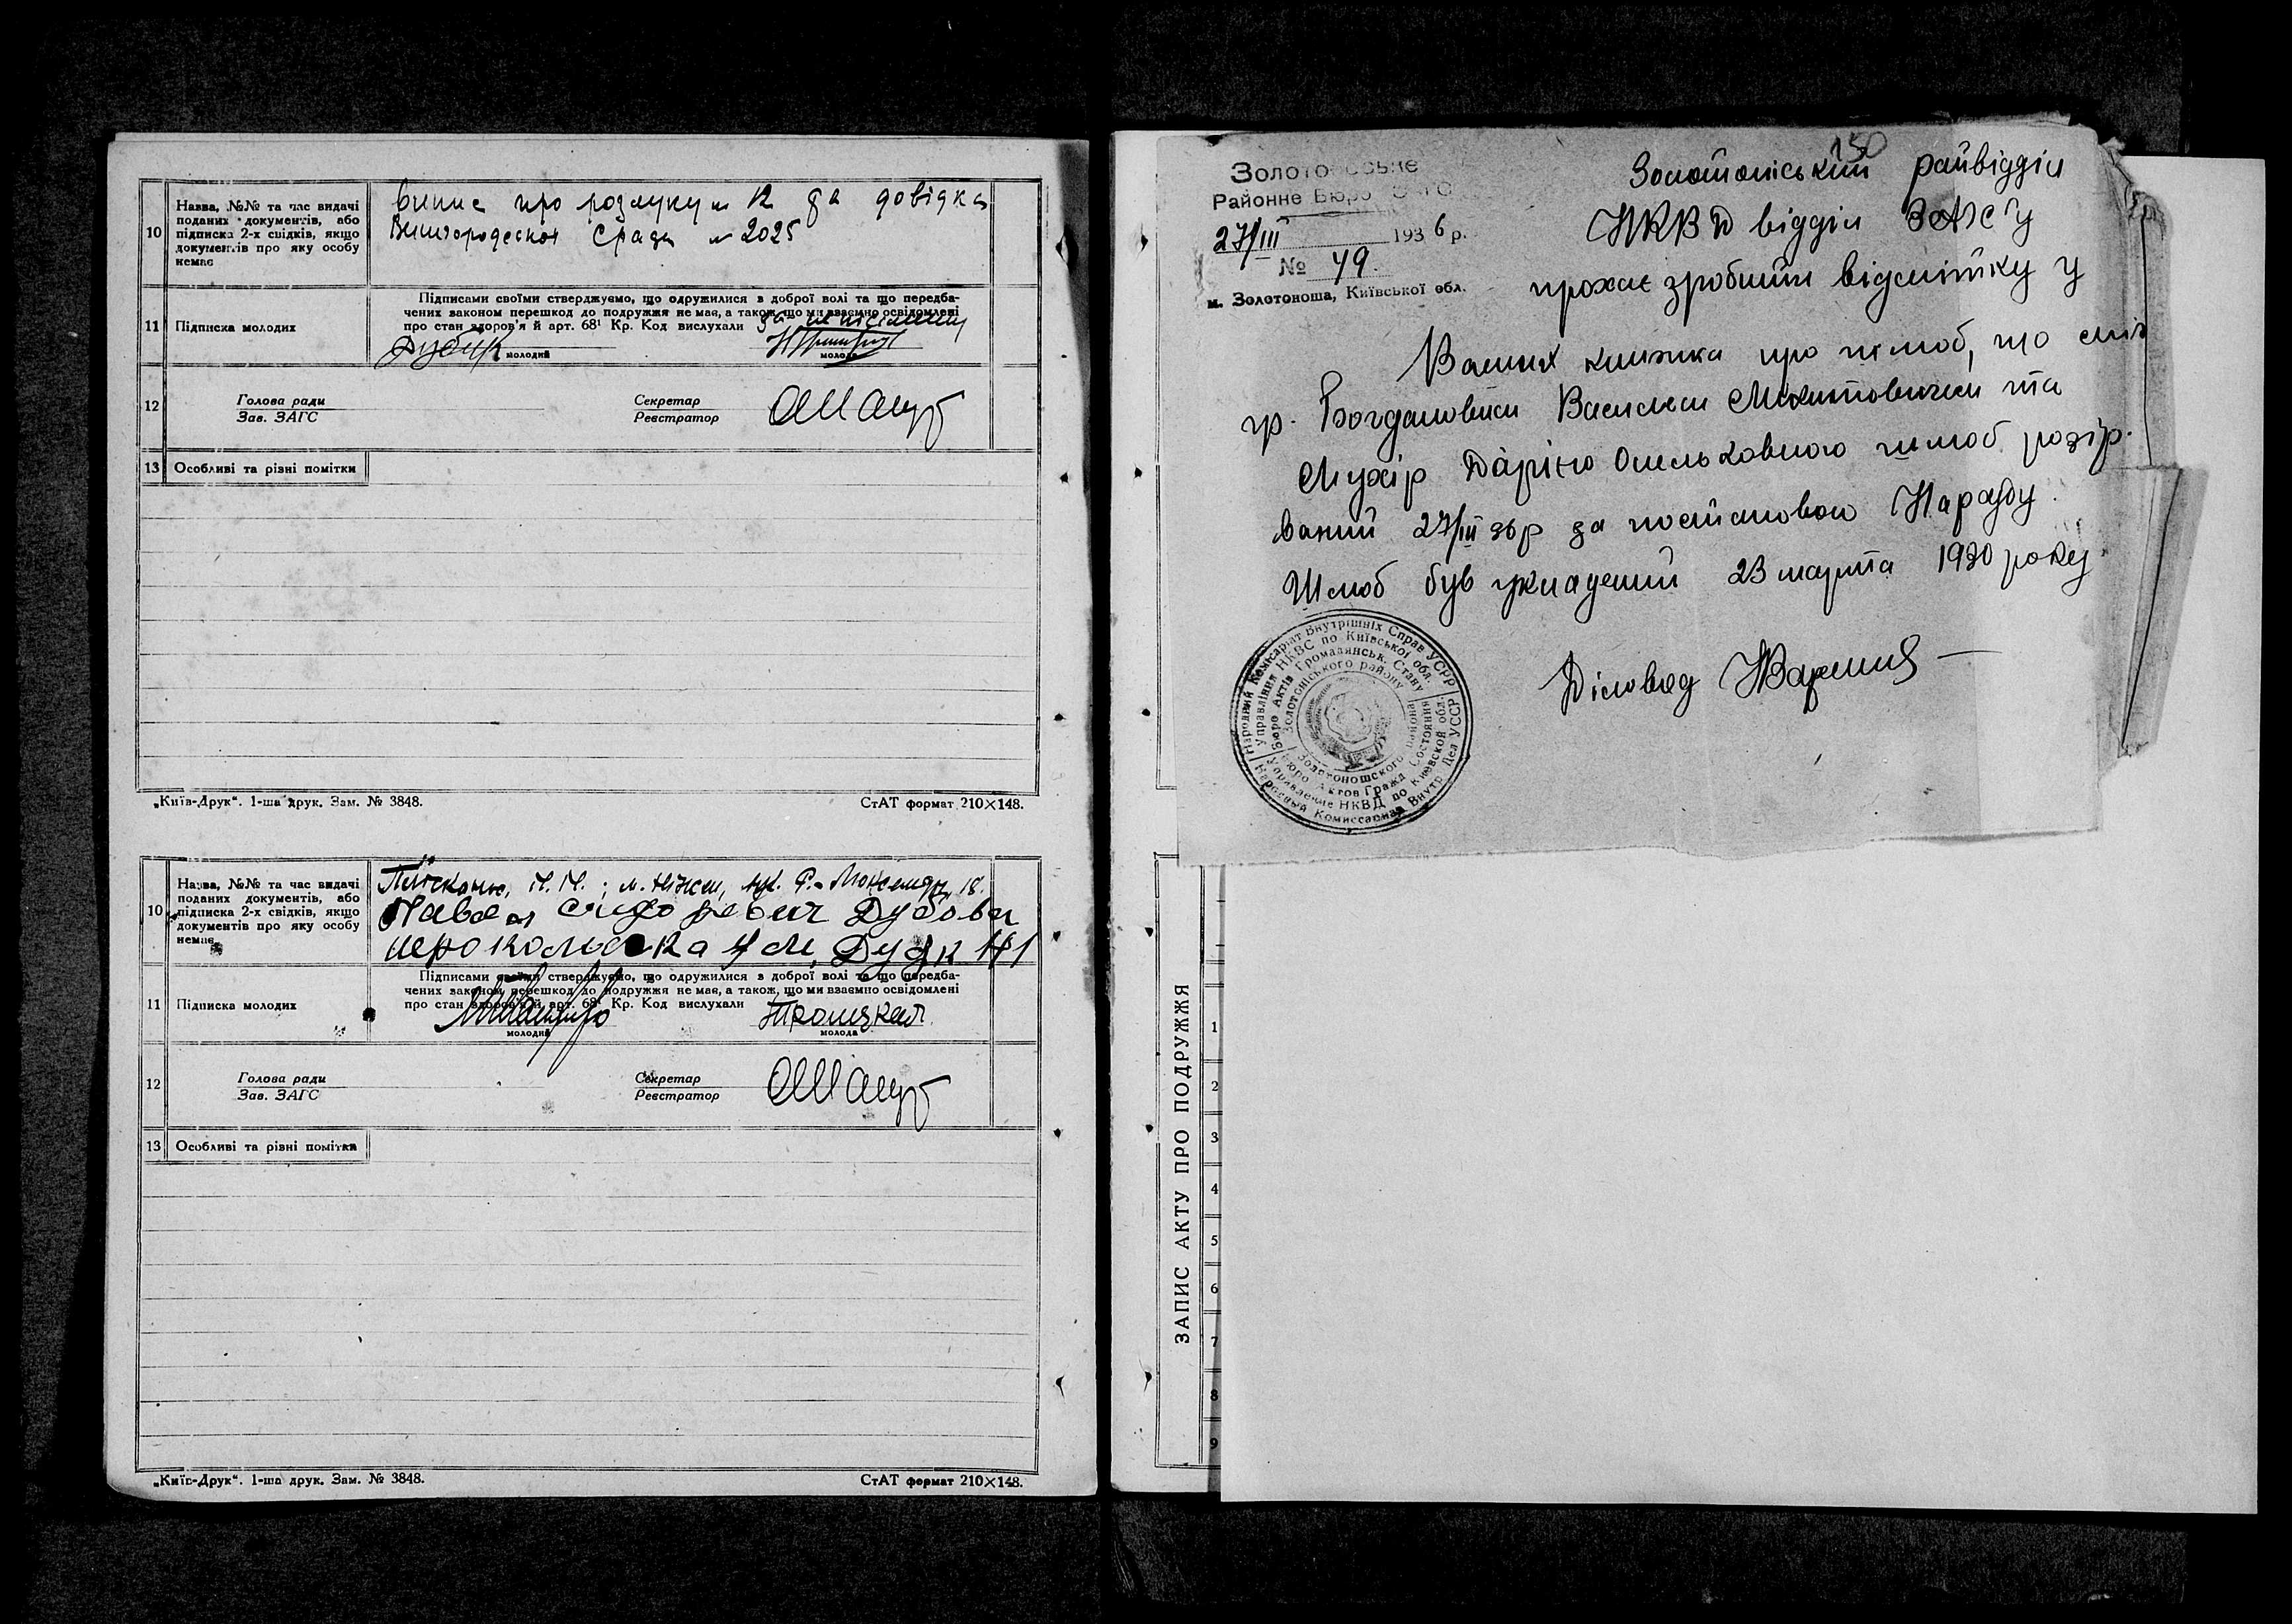 10 Назва, №№ та час видачі
поданих документів, або
підписка 2-х свідків, якщо
документів про яку особу
немає
випис про розлуку № 12 да довідка
Вишгородської с/ради № 2025
11 Підписка молодих
Підписами своїми стверджуємо, що одружилися в доброї волі та що передба-
чених законом перешкод до подружжя не має, а також, що ми взаємно освідомлені
про стан здоров'я й арт. 68¹ Кр. Код вислухали
молодий
молода
12 Голова ради
Зав. ЗАГС
Секретар
Реєстратор
13 Особливі та різні помітки
„Київ-Друк“. 1-ша друк. Зам. № 3848.
СтАТ формат 210×148.
10 Назва, №№ та час видачі
поданих документів, або
підписка 2-х свідків, якщо
документів про яку особу
немає
м. Ніжен, 18.
Павел Сидоревич Дубова
11 Підписка молодих
Підписами своїми стверджуємо, що одружилися в доброї волі та що передба-
чених законом перешкод до подружжя не має, а також, що ми взаємно освідомлені
про стан здоров'я й арт. 68¹ Кр. Код вислухали
молодий
молода
12 Голова ради
Зав. ЗАГС
Секретар
Реєстратор
13 Особливі та різні помітки
„Київ-Друк“. 1-ша друк. Зам. № 3848.
СтАТ формат 210×148.
150
Районне Бюро
27/III 1936 р.
№ 49.
м. Золотоноша, Київської обл.
Золотоніський райвідділ
НКВД відділ ЗАГСУ
прохає зробити відмітку у
Ваших книжка про шлюб, що між
гр. Богдановим Василем Микитовичем та
Мухір Дарією Омельковною шлюб розір-
ваний 27/III 36 р за постановою Нарсуду.
Шлюб був укладений 23 марта 1930 року.
Діловод
Народний Комісаріат Внутрішніх Справ УСРР
Управління НКВС по Київської обл.
Бюро Актів Громадянськ. Стану
Золотоніського району
Золотоношского района
Бюро Актов Гражд Состояния
Управление НКВД по Киевской обл
Народный Комиссариат Внутр Дел УССР
ЗАПИС АКТУ ПРО ПОДРУЖЖЯ
1
2
3
4
5
6
7
8
9